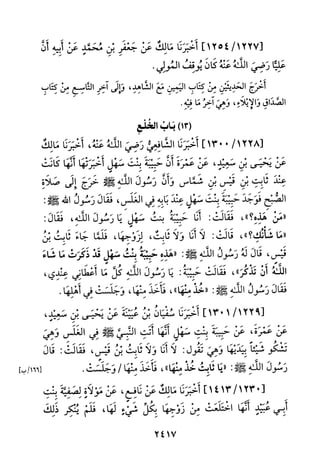 [١٢٢٧/ ١٢٥٤] أَخْبَرَنَا مَالِكٌ عَنْ جَعْفَرِ بْنِ مُحَمَّدٍ عَنْ أَبِيهِ أَنَّ
عَلِيًّا رَضِيَ اللَّهُ عَنْهُ كَانَ يُوقِفُ المولي.
أَخْرَجَ الْحَدِيثَيْنِ مِنْ كِتَابِ اليمينِ مَعَ الشاهِدِ، وَإِلَى آخِرِ التاسِعِ مِنْ كِتَابِ
الصَّدَاقِ وَالإِيلَاءِ، وَهِيَ آخِرُ مَا فِيهِ.
(١٣) بَـابُ الـخُـلْـعِ
[١٢٢٨/ ١٣٠٠] أَخْبَرَنَا الشَّافِعِيُّ رَضِيَ اللَّهُ عَنْهُ، أَخْبَرَنَا مَالِكٌ
عَنْ يَحْيَى بْنِ سَعِيْدٍ، عَنْ عَمْرَةَ أَنَّ حَبِيْبَةَ بِنْتَ سَهْلٍ أَخْبَرَتْهَا أَنَّهَا كَانَتْ
عِنْدَ ثَابِتِ بْنِ قَيْسِ بْنِ شَمَّاسٍ وَأَنَّ رَسُولَ اللَّهِ ﷺ خَرَجَ إِلَى صَلَاةِ
الصُّبْحِ فَوَجَدَ حَبِيْبَةَ بِنْتَ سَهْلٍ عِنْدَ بَابِهِ فِي الغَلَسِ، فَقَالَ رَسُولُ اللهِ ﷺ:
«مَنْ هَذِهِ؟»، فَقَالَتْ: أَنَا حَبِيْبَةُ بنتُ سَهْلٍ يَا رَسُولَ اللَّهِ، فَقَالَ:
«مَا شَأْنُكِ؟»، قَالَتْ: لَا أَنَا وَلَا ثَابِتٌ، لِزَوْجِهَا، فَلَمَّا جَاءَ ثَابِتُ بْنُ
قَيْس، قَالَ لَهُ رَسُولُ اللَّهِ ﷺ: «هَذِهِ حَبِيْبَةُ بِنْتُ سَهْلٍ قَدْ ذَكَرَتْ مَا شَاءَ
اللَّهُ أَنْ تَذْكُرَ»، فَقَالَتْ حَبِيْبَةُ: يَا رَسُولَ اللَّهِ كُلُّ مَا أَعْطَانِي عِنْدِي،
فَقَالَ رَسُولُ اللَّهِ ﷺ: «خُذْ مِنْهَا»، فَأَخَذَ مِنْهَا، وَجَلَسَتْ فِي أَهْلِهَا.
[١٢٢٩/ ١٣٠١] أَخْبَرَنَا سُفْيَانُ بْنُ عُيَيْنَةَ عَنْ يَحْيَى بْنِ سَعِيْدٍ،
عَنْ عَمْرَةَ، عَنْ حَبِيْبَةَ بِنْتِ سَهْلٍ أَنَّهَا أَتَتِ النَّبِيَّ ﷺ فِي الغَلَسِ وَهِيَ
تَشْكُو شَيْئاً بِبَدَنِهَا وَهِيَ تَقُول: لَا أَنَا وَلَا ثَابِتُ بْنُ قَيْس، فَقَالَتْ: قَالَ
رَسُولُ اللَّهِ ﷺ: «يَا ثَابِتُ خُذْ مِنْهَا»، فَأَخَذَ مِنْهَا/ وَجَلَسَتْ.
[١٦٦/ب]
[١٢٣٠/ ١٤١٣] أَخْبَرَنَا مَالِكٌ عَنْ نَافِعٍ، عَنْ مَوْلَاةٍ لِصَفِيَّةَ بِنْتِ
أَبِي عُبَيْدٍ أَنَّهَا اخْتَلَعَتْ مِنْ زَوْجِهَا بِكُلِّ شَيْءٍ لَهَا، فَلَمْ يُنْكِرْ ذَلِكَ
٢٤١٧